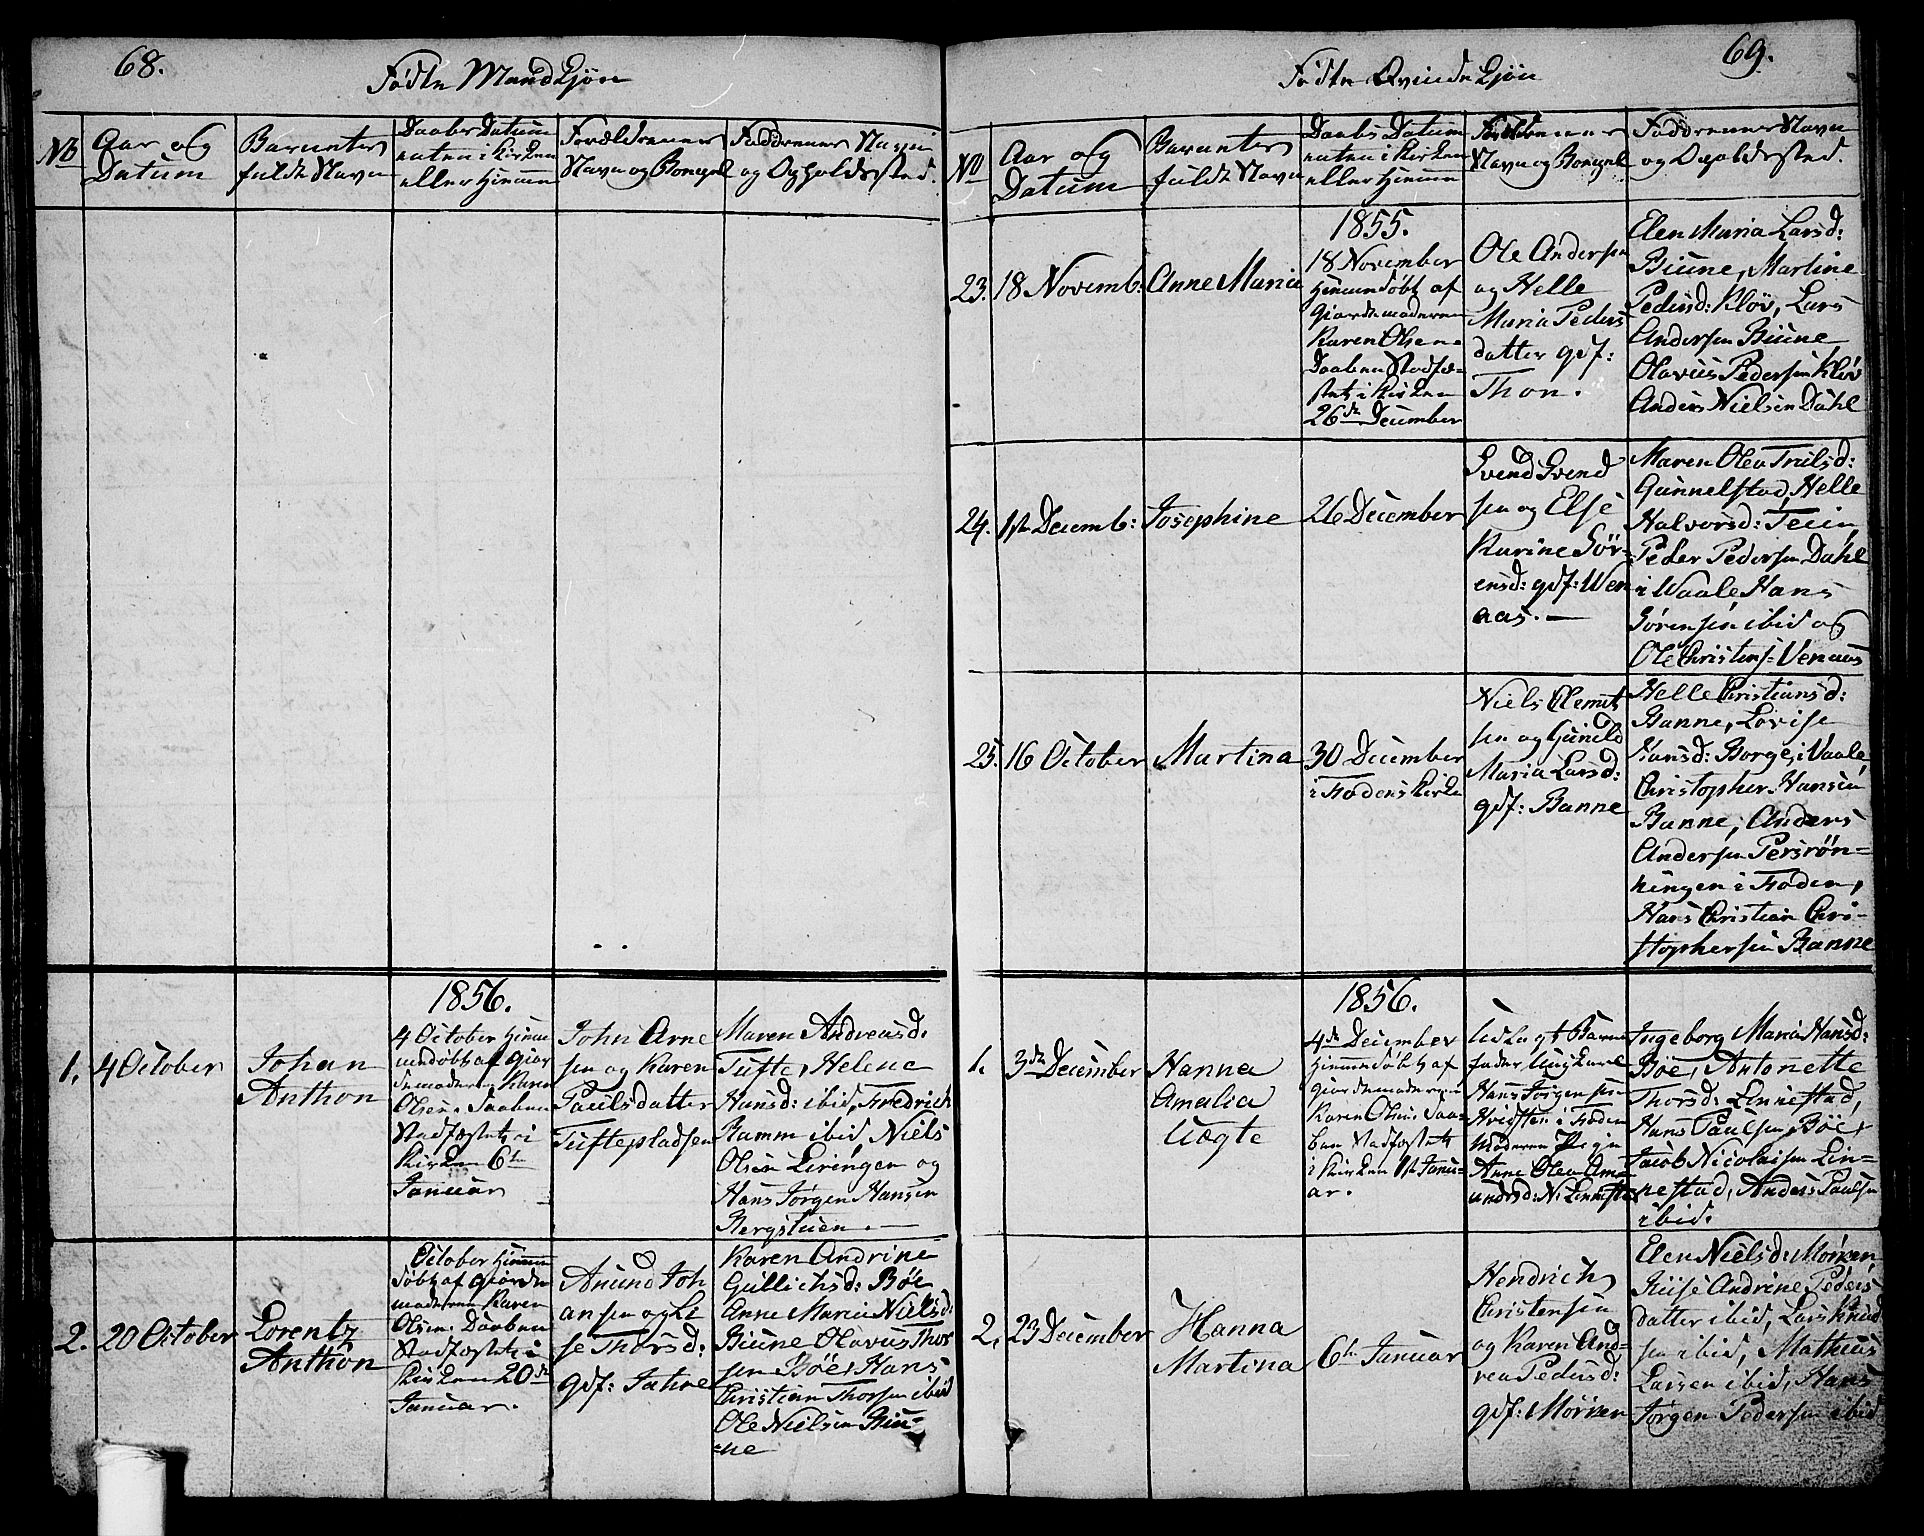 68.
Fødte Mandkjøn
No
Aar og
Datum
Barnets
fulde Navn
Daabs Datum
enten i Kirken
eller Hjemme
Forældrenes
Navn og Bopæl
Faddrenes Navn
og Opholdssted.
1856.
1.
4 October
Johan
Anthon
4 October Hjem-
medøbt af Gior-
demoderen Karen
Olsen. Daaben
Stadfæstet i
Kirken 6te
Januar
John Arne
sen og Karen
Paulsdatter
Tuftepladsen
Maren Andreasd:
Tufte, Helene
Hansd: ibid, Fredrich
Ramm ibid, Niels
Olsen Lerengen og
Hans Jørgen Hansen
Bergstuen. —
2.
20 October
Lorentz
Anthon
October Hjemme
døbt af Giorde
moderen Karen
Olsen. Daaben
Stadfæstet i
Kirken 20de
Januar.
Amund Joh
ansen og Li
se Thorsd:
gdf: Jahre
Karen Andrine
Gullichsd: Bøe
Anne Maria Nielsd:
Biune Olavus Thor
sen Bøe, Hans
Christian Thorsen ibid
Ole Nielsen Biu-
ne
69.
Fødte Qvindekjøn
No
Aar og
Datum
Barnets
fulde Navn
Daabs Datum
enten i Kirken
eller Hjemme
Forældrenes
Navn og Bopæl
Faddrenes Navn
og Opholdssted.
1855.
23.
18 Novemb:
Anne Maria
18 November
Hjemmedøbt af
Giordemoderen
Karen Olsen.
Daaben Stadfæ-
stet i Kirken
26de December
Ole Andersen
og Helle
Maria Peders
datter gdf:
Thon.
Elen Maria Larsd:
Biune, Martine
Pedersd: Kløv, Lars
Andersen Biune
Olavus Pedersen Kløv
Anders Nielsen Dahl
24.
1ste Decemb:
Josephine
26 December
Svend Svend
sen og Else
Karine Sør-
ensd: gdf: Wen
aas. —
Maren Olea Trulsd:
Gunnelstad, Helle
Halvorsd: Teien
Peder Pedersen Dahl
i Waale Hans
Sørensen ibid og
Ole Christens: Venaas
25.
16 October
Martina
30 December
i Fodens Kirke
Niels Clemet
sen og Gunild
Maria Larsd:
gdf: Banne
Helle Christiansd:
Banne, Lovise
Hansd: Borge i Vaale,
Christopher Hansen
Banne, Anders
Andersen Persrøn-
ningen i Foden,
Hans Christian Chri-
stophersen Banne
1856.
1.
3de December
Hanna
Amalia
Uægte
4de December
Hjemmedøbt af
Giordemoderen
Karen Olsen, Daa-
ben Stadfæstet
i Kirken 1ste Janu-
ar.
Udlagt Barne
fader Ungkarl
Hans Jørgensen
Kvidsten i Foden
Moderen Pigen
Anne Olea Am-
undsd: N. Linnestad
Ingeborg Maria Hansd:
Bøe, Antonette
Thorsd: Linnestad,
Hans Paulsen Bøe,
Jacob Nicolaisen Lin-
nestad, Anders Paulsen
ibid.
2.
23 December
Hanna
Martina
6te Januar
Hendrich
Christensen
og Karen And-
rea Pedersd:
gdf: Mørken
Elen Nielsd: Mørken,
Andrine Peders
datter ibid, Lars Knud
sen ibid, Mathias
Larsen ibid, Hans
Jørgen Pedersen ibid